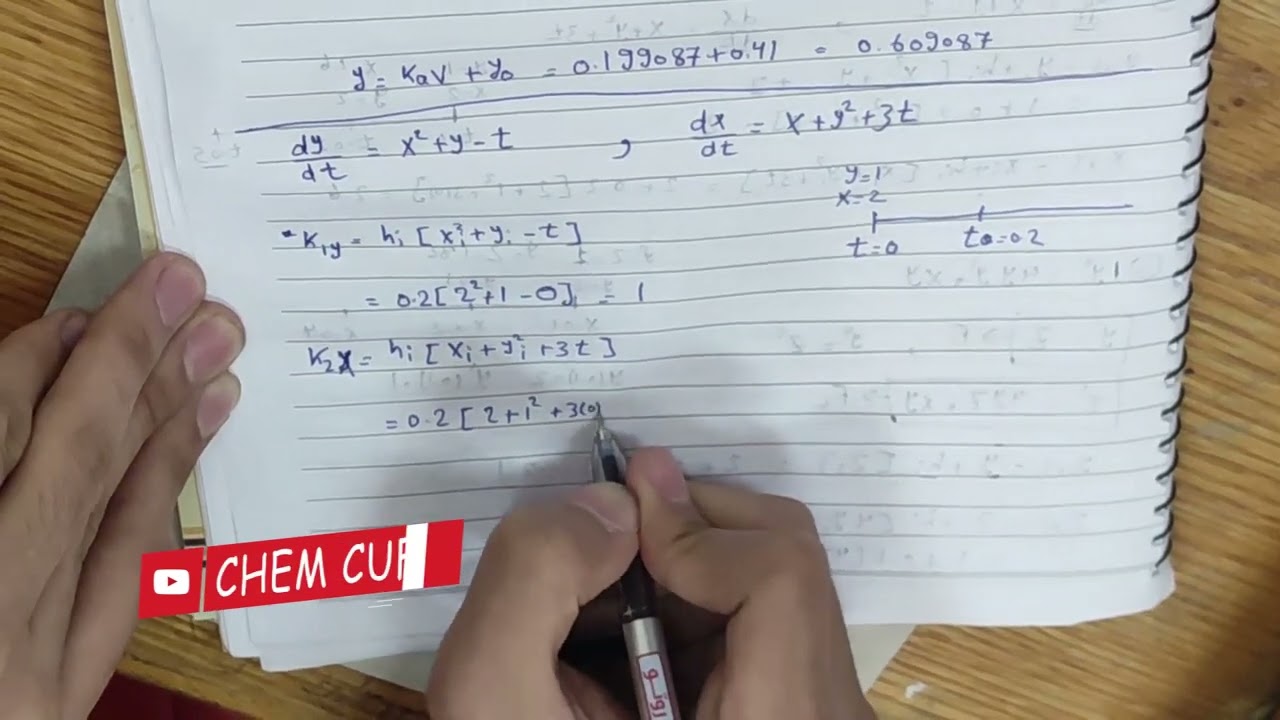 y = Kav + y₀ = 0.199087 + 0.41 = 0.609087
dy/dt = x² + y - t , dx/dt = x + y² + 3t
y=1
x=2
t=0 t=0.2
K₁y = hᵢ [xᵢ² + yᵢ - t]
= 0.2 [2² + 1 - 0] = 1
K₂x = hᵢ [xᵢ + yᵢ² + 3t]
= 0.2 [2 + 1² + 3(0)
CHEM CUF